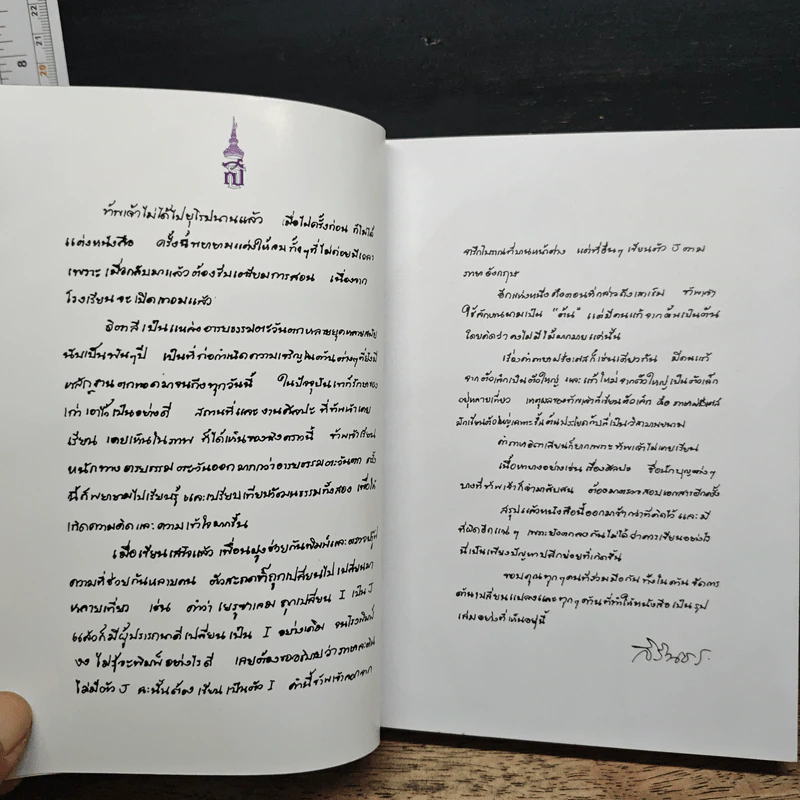 8
21
22
20
ข้าพเจ้าไม่ได้ไปยุโรปนานแล้ว เมื่อไปครั้งก่อน ก็ไม่ได้
แต่งหนังสือ ครั้งนี้พยายามแต่งให้จบ ทั้งๆที่ไม่ค่อยมีเวลา
เพราะ เมื่อกลับมาแล้วต้องรีบเตรียมการสอน เนื่องจาก
โรงเรียนจะเปิดเทอมแล้ว
อิตาลีเป็นแหล่งอารยธรรมตะวันตกหลายยุคหลายสมัย
นับเป็นพันๆปี เป็นที่ก่อกำเนิดความเจริญในด้านต่างๆที่ยังมี
หลักฐานตกทอดมาจนถึงทุกวันนี้ ในปัจจุบันเขาก็รักษาของ
เก่าเอาไว้เป็นอย่างดี สถานที่และงานศิลปะ ที่ข้าพเจ้าเคย
เรียน เคยเห็นในภาพ ก็ได้เห็นของจริงคราวนี้ ข้าพเจ้าเรียน
หนักทางอารยธรรมตะวันออกมากกว่าอารยธรรมตะวันตก ครั้ง
นี้ก็พยายามไปเรียนรู้ และเปรียบเทียบวัฒนธรรมทั้งสอง เพื่อให้
เกิดความคิดและความเข้าใจมากขึ้น
เมื่อเขียนเสร็จแล้ว เพื่อนฝูงช่วยกันพิมพ์และตรวจปรู๊ฟ
ความที่ช่วยกันหลายคน ตัวสะกดก็ถูกเปลี่ยนไปเปลี่ยนมา
หลายเที่ยว เช่น คำว่า เยรูซาเลม ถูกเปลี่ยน I เป็น J
แล้วก็มีผู้ปรารถนาดีเปลี่ยนเป็น I อย่างเดิม จนโรงพิมพ์
งง ไม่รู้จะพิมพ์อย่างไรดี เลยต้องขออธิบายว่าภาษาละติน
ไม่มีตัว J ฉะนั้นต้องเขียนเป็นตัว I คำนี้ข้าพเจ้าลอกจาก
จารึกโบราณที่บานหน้าต่าง แต่ที่อื่นๆ เขียนตัว J ตาม
ภาษาอังกฤษ
อีกแห่งหนึ่ง คือตอนที่กล่าวถึง ข้าพเจ้า
ใช้ลักษณนามเป็น "ต้น" แต่มีคนแก้จากต้นเป็นต้น
โดยคิดว่าคงไม่มีไม้มากมายแค่นั้น
เรื่องคำภาษาฝรั่งเศสก็เช่นเดียวกัน มีคนแก้
จากตัวเล็กเป็นตัวใหญ่ และแก้ใหม่จากตัวใหญ่เป็นตัวเล็ก
อยู่หลายเที่ยว เหตุผลของข้าพเจ้าที่เขียนตัวเล็ก คือ ภาษาฝรั่งเศส
มักเขียนตัวใหญ่เฉพาะขึ้นต้นประโยคกับที่เป็นวิสามานยนาม
คำภาษาอิตาเลียนก็ยากเพราะข้าพเจ้าไม่เคยเรียน
เนื้อหาบางอย่างเช่น เรื่องศิลปะ ชื่อนักบุญต่างๆ
บางทีข้าพเจ้าก็จำมาสับสน ต้องมาตรวจสอบเอกสารอีกครั้ง
สรุปแล้วหนังสือนี้ออกมาช้ากว่าที่คิดไว้ และมี
ที่ผิดอีกแน่ๆ เพราะยังตกลงกันไม่ได้ว่าควรเขียนอย่างไร
นี่เป็นเพียงปัญหาปลีกย่อยที่เกิดขึ้น
ขอบคุณทุกๆคนที่ร่วมมือกัน ทั้งในด้านจัดการ
ด้านเปลี่ยนแปลงและทุกๆด้านที่ทำให้หนังสือเป็นรูป
เล่มอย่างที่เห็นอยู่นี้
สิรินธร